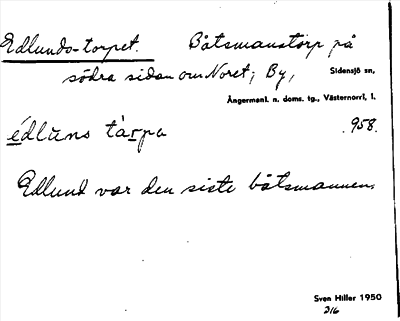 Edlunds-torpet. Båtsmanstorp på
södra sidan om Noret, By, Sidensjö sn,
Ångermanl. n. doms. tg., Västernorrl. l.
édlūns tàrpa 958.
Edlund var den siste båtsmannen.
Sven Hiller 1950
216